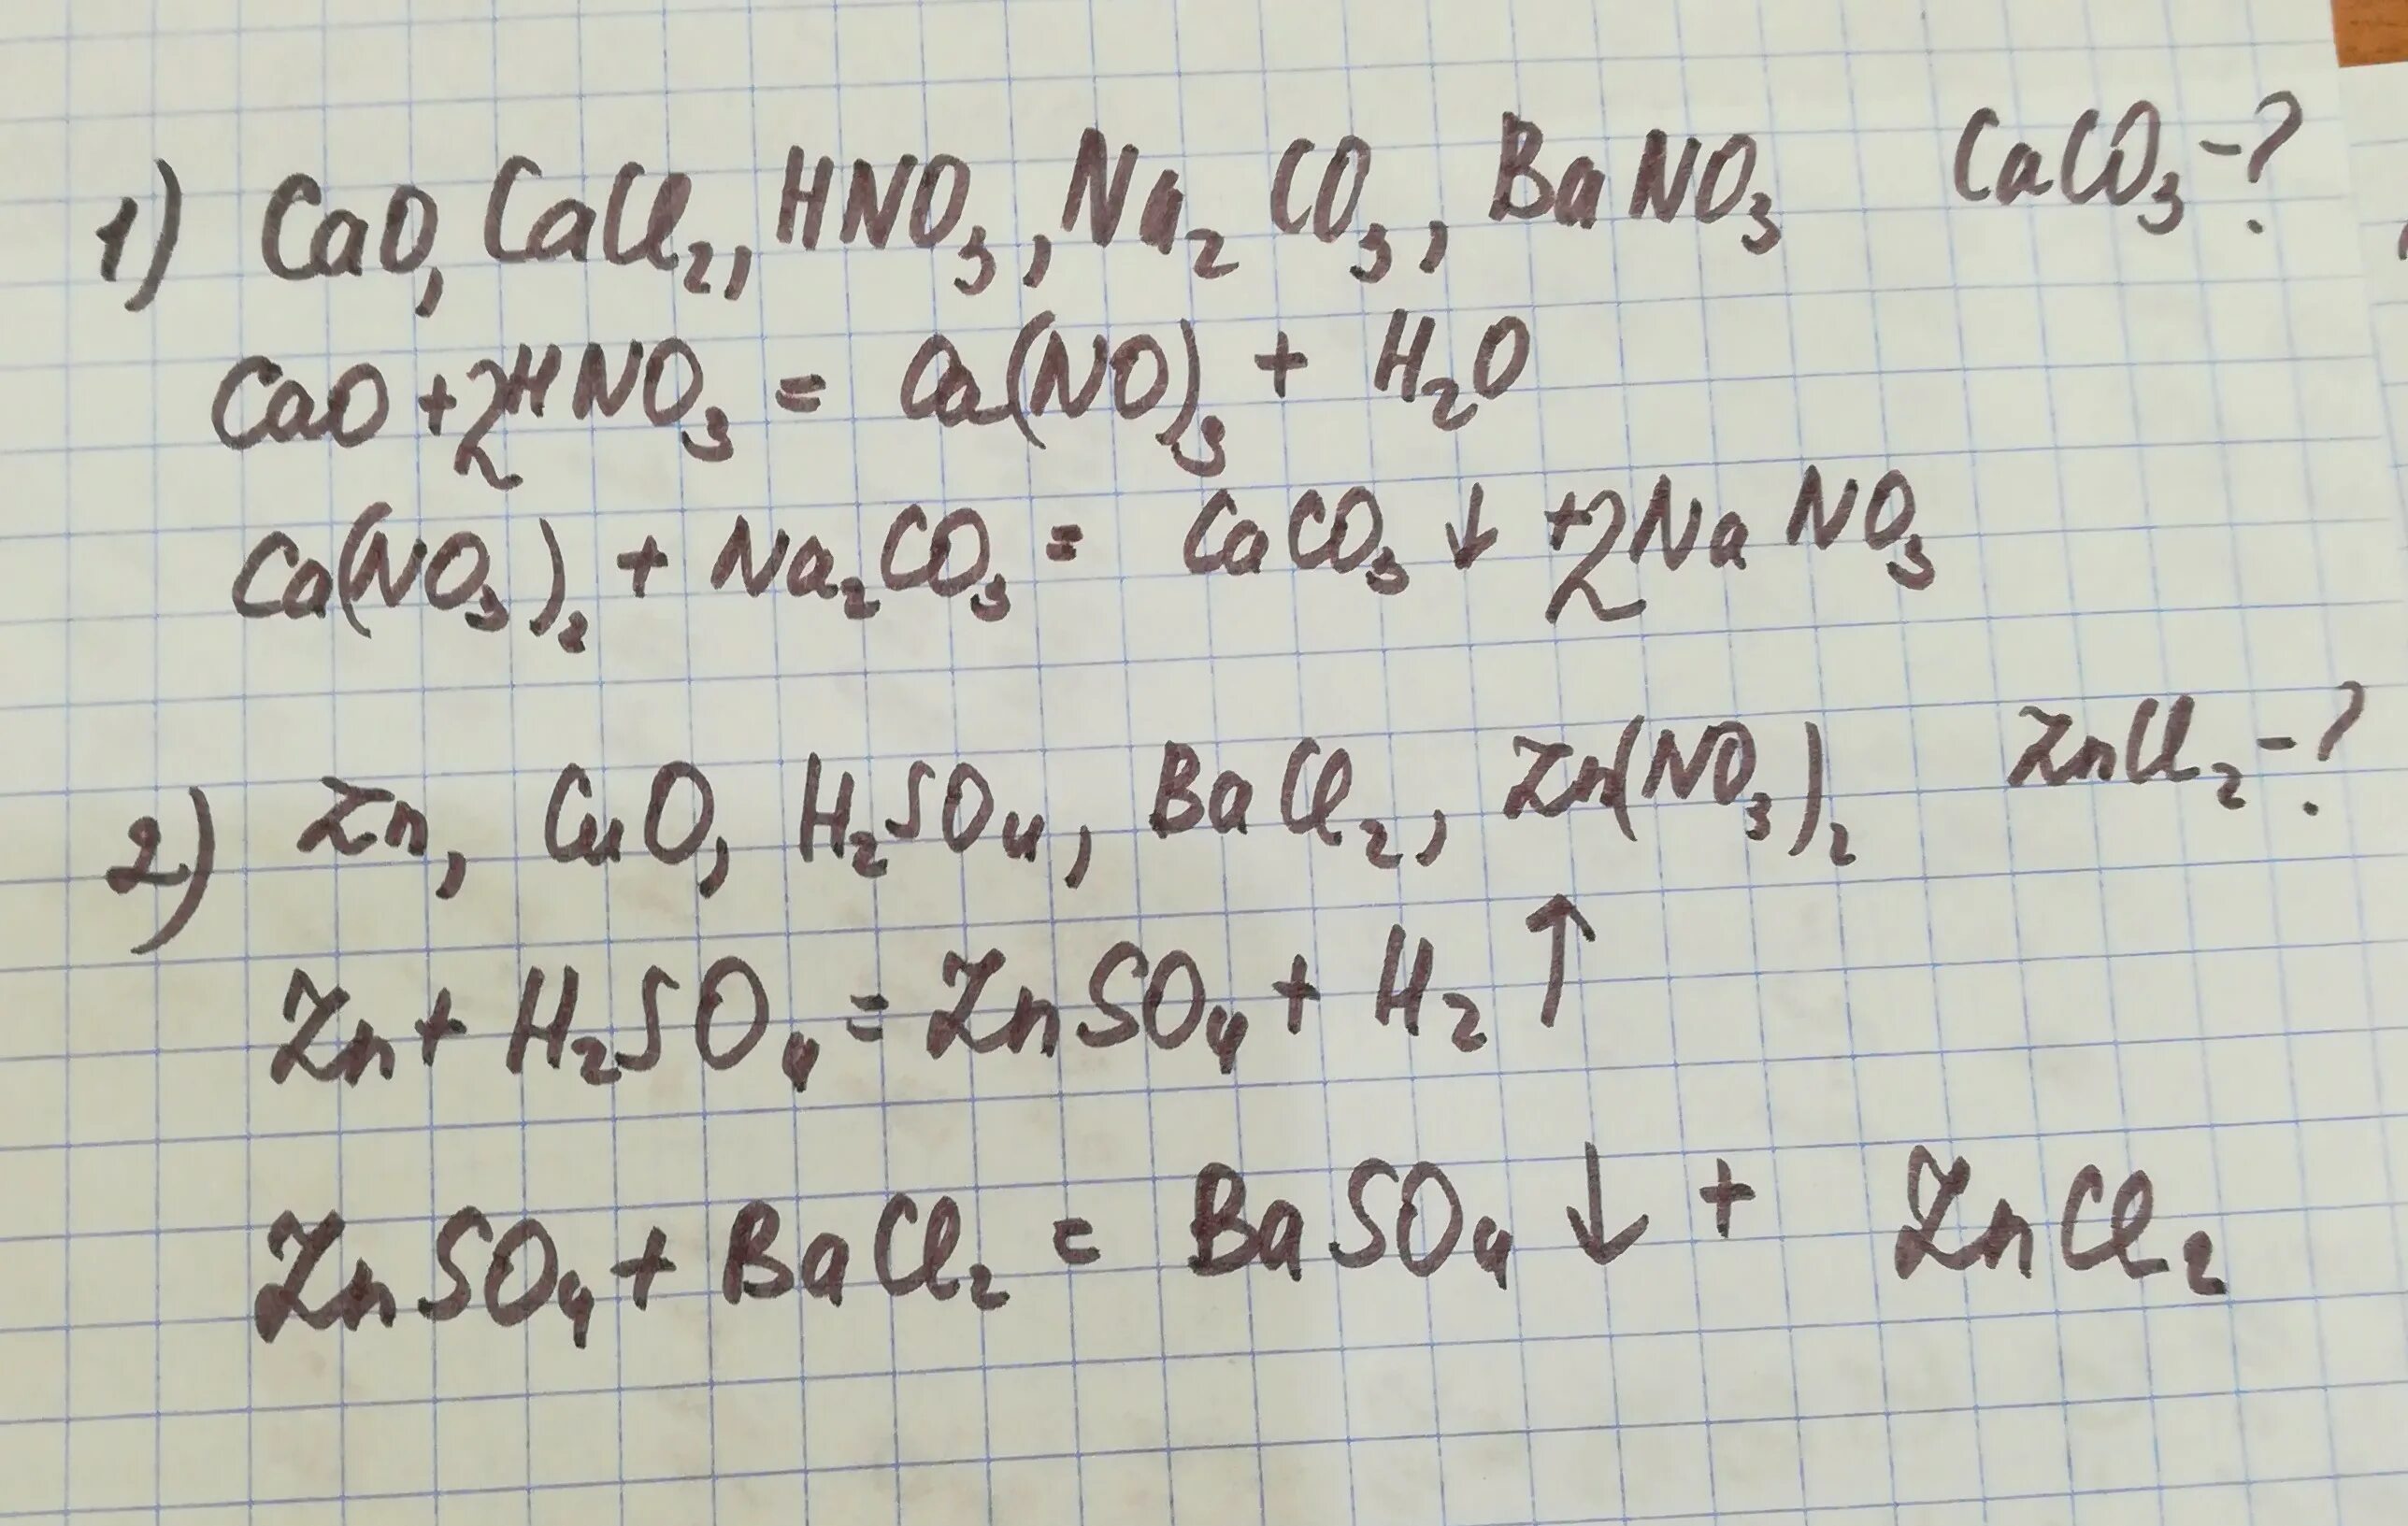 1) CaO, CaCl₂, HNO₃, Na₂CO₃, BaNO₃ CaCO₃-?
CaO + 2HNO₃ = Ca(NO)₃ + H₂O
Ca(NO₃)₂ + Na₂CO₃ = CaCO₃ ↓ + 2NaNO₃
2) Zn, CuO, H₂SO₄, BaCl₂, Zn(NO₃)₂ ZnCl₂-?
Zn + H₂SO₄ = ZnSO₄ + H₂ ↑
ZnSO₄ + BaCl₂ = BaSO₄ ↓ + ZnCl₂